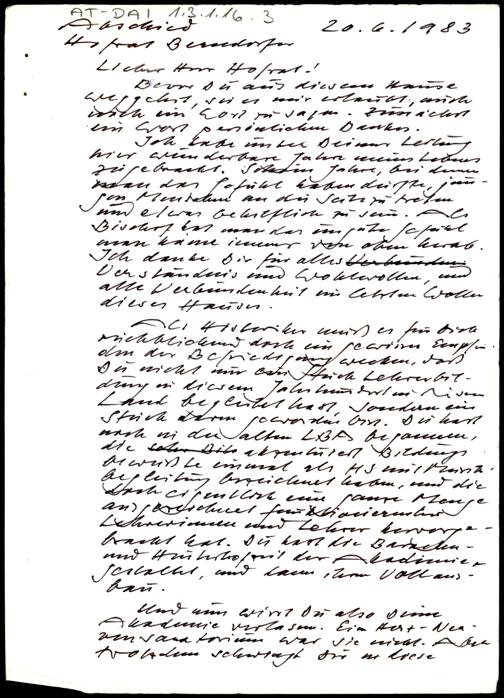 AT-DAI 1.3.1.16.3
Abschied 20.6.1983
Hofrat Berndorfer
Lieber Herr Hofrat!
Bevor Du aus diesem Hause
weggehst, sei es mir erlaubt, auch
noch ein Wort zu sagen. Zunächst
ein Wort persönlichen Dankes.
Ich habe unter Deiner Leitung
hier wunderbare Jahre meines Lebens
zugebracht. Jahre, bei denen
man das Gefühl haben durfte, jun-
gen Menschen an die Seite zu treten
und etwas behilflich zu sein. Als
Bischof hat man das ungute Gefühl
man käme immer von oben herab.
Ich danke Dir für alles Verbunden
Verständnis und Wohlwollen, und
alle Verbundenheit im letzten Wollen
dieses Hauses.
Als Historiker muß es für Dich
rückblickend doch ein gewisses Empfin-
den der Befriedigung wecken, daß
Du nicht nur ein Stück Lehrerbil-
dung in diesem Jahrhundert in diesem
Land begleitet hast, sondern ein
Stück davon geworden bist. Du hast
noch in der alten LBA begonnen,
die akzentuiert Bildungs
bewußte einmal als HS mit Musik-
begleitung bezeichnet haben, und die
doch eigentlich eine ganze Menge
ausgezeichnet
Lehrerinnen und Lehrer hervorge-
bracht hat. Du hast die Baracken-
und Hinterhofzeit der Akademie
gestaltet, und dann ihren Vollaus-
bau.
Und nun wirst Du also Deine
Akademie verlassen. Ein Herz-Ner-
vensanatorium war sie nicht. Aber
trotzdem schwingt Dir in diese